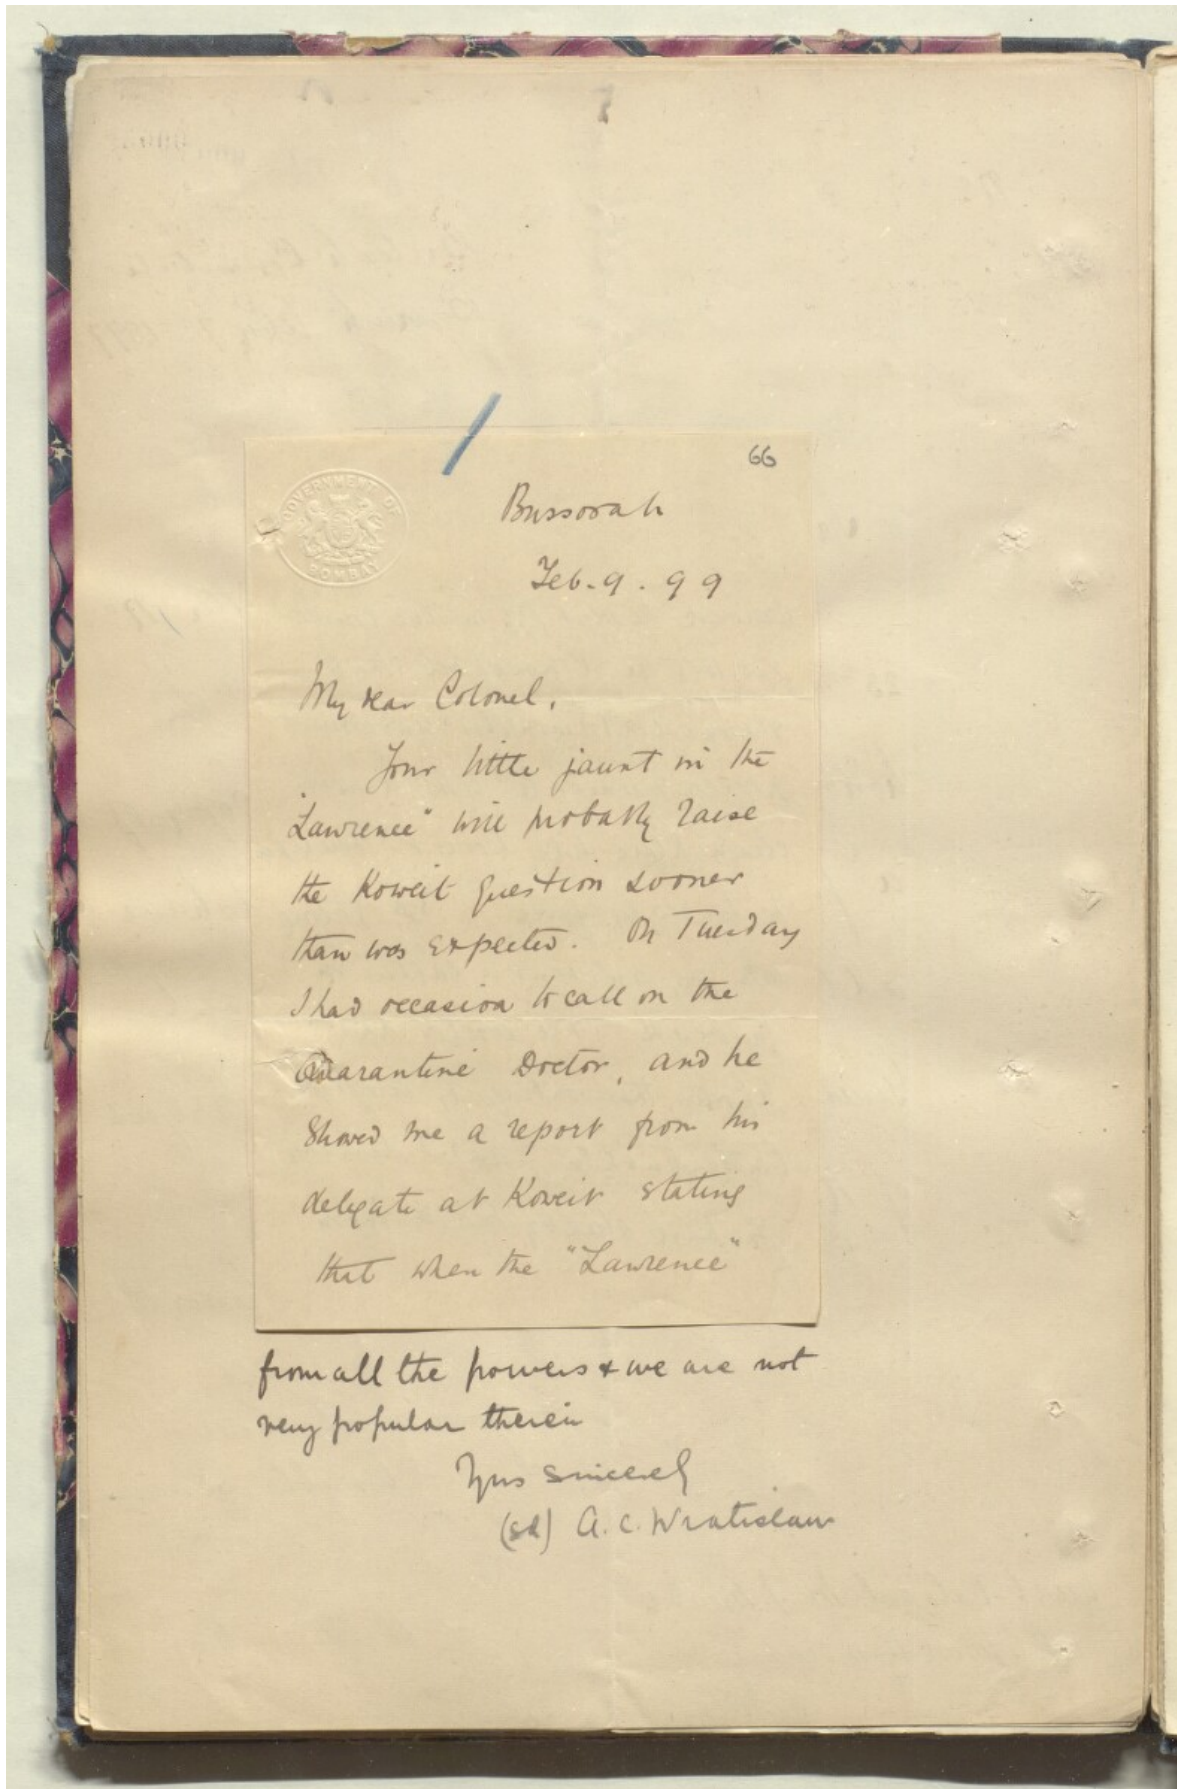 66
GOVERNMENT OF
BOMBAY
Bussorah
Feb. 9. 99
My dear Colonel,
Your little jaunt in the
"Lawrence" will probably raise
the Koweit question sooner
than was expected. On Tuesday
I had occasion to call on the
Quarantine Doctor, and he
showed me a report from his
delegate at Koweit stating
that when the "Lawrence"
from all the powers & we are not
very popular therein
Yrs sincerely
(sd) A. C. Wratislaw